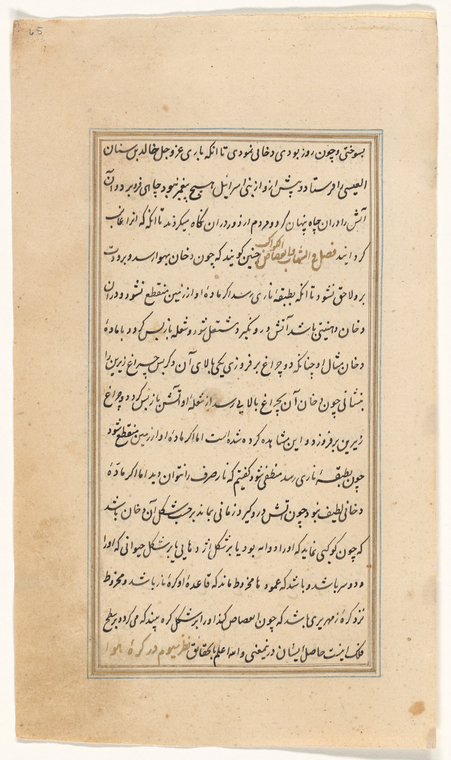 بسوختی و چون روز بودی دخانی نمودی تا انکه باری عز و جل خالد بن سنان
العیسی را فرستاد و پیش ازو از بنی اسرائیل هیچ پیغمبر نبود چاهی فرو برد و آن
آتش را در آن چاه پنهان کرد و مردم از دور در آن نگاه میکردند تا انکه از غایب
کردانید فصل فی الشهاب و انقضاض الکواکب چنین کویند که چون دخان بهوا رسد و برودت
برو لاحق نشود تا انکه بطبقهٔ ناری رسد اکر مادهٔ او از زمین منقطع نشود و در ان
دخان دهنیتی باشد آتش درو بگیرد و مشتعل شود و شعله باز پس کردد با مادهٔ
دخان مثال او چنانکه دو چراغ برفروزی یکی بالای آن دیکر پس چراغ زیرین را
بنشانی چون دخان آن بچراغ بالایی رسد از شعلهٔ او آتش باز پس کردد و چراغ
زیرین برفروزد و این مشاهده کرده شده است اما اکر مادهٔ او از زمین منقطع شود
چون بطبقهٔ ناری رسد منطفی شود کفتیم که نار صرف را نتوان دید اما اکر مادّهٔ
دخانی لطیف نبود چون آتش درو کیرد زمانی بماند بر حسب شکل آن دخان باشد
که چون کوکبی نماید که او را دوابه بود یا بر شکل اژدهایی یا بر شکل حیوانی که او را
دو سر باشد و باشد که عمود با مخروط ماند که قاعدهٔ او کرهٔ نار باشد و مخروط
نزد کرهٔ زمهریر باشد که چون انقضاض کند او را بر شکل کره بینند که می کردد بر سطح
فلک اینست حاصل ایشان درین معنی و الله اعلم بالحقایق نظر سیوم در کرهٔ هوا
65